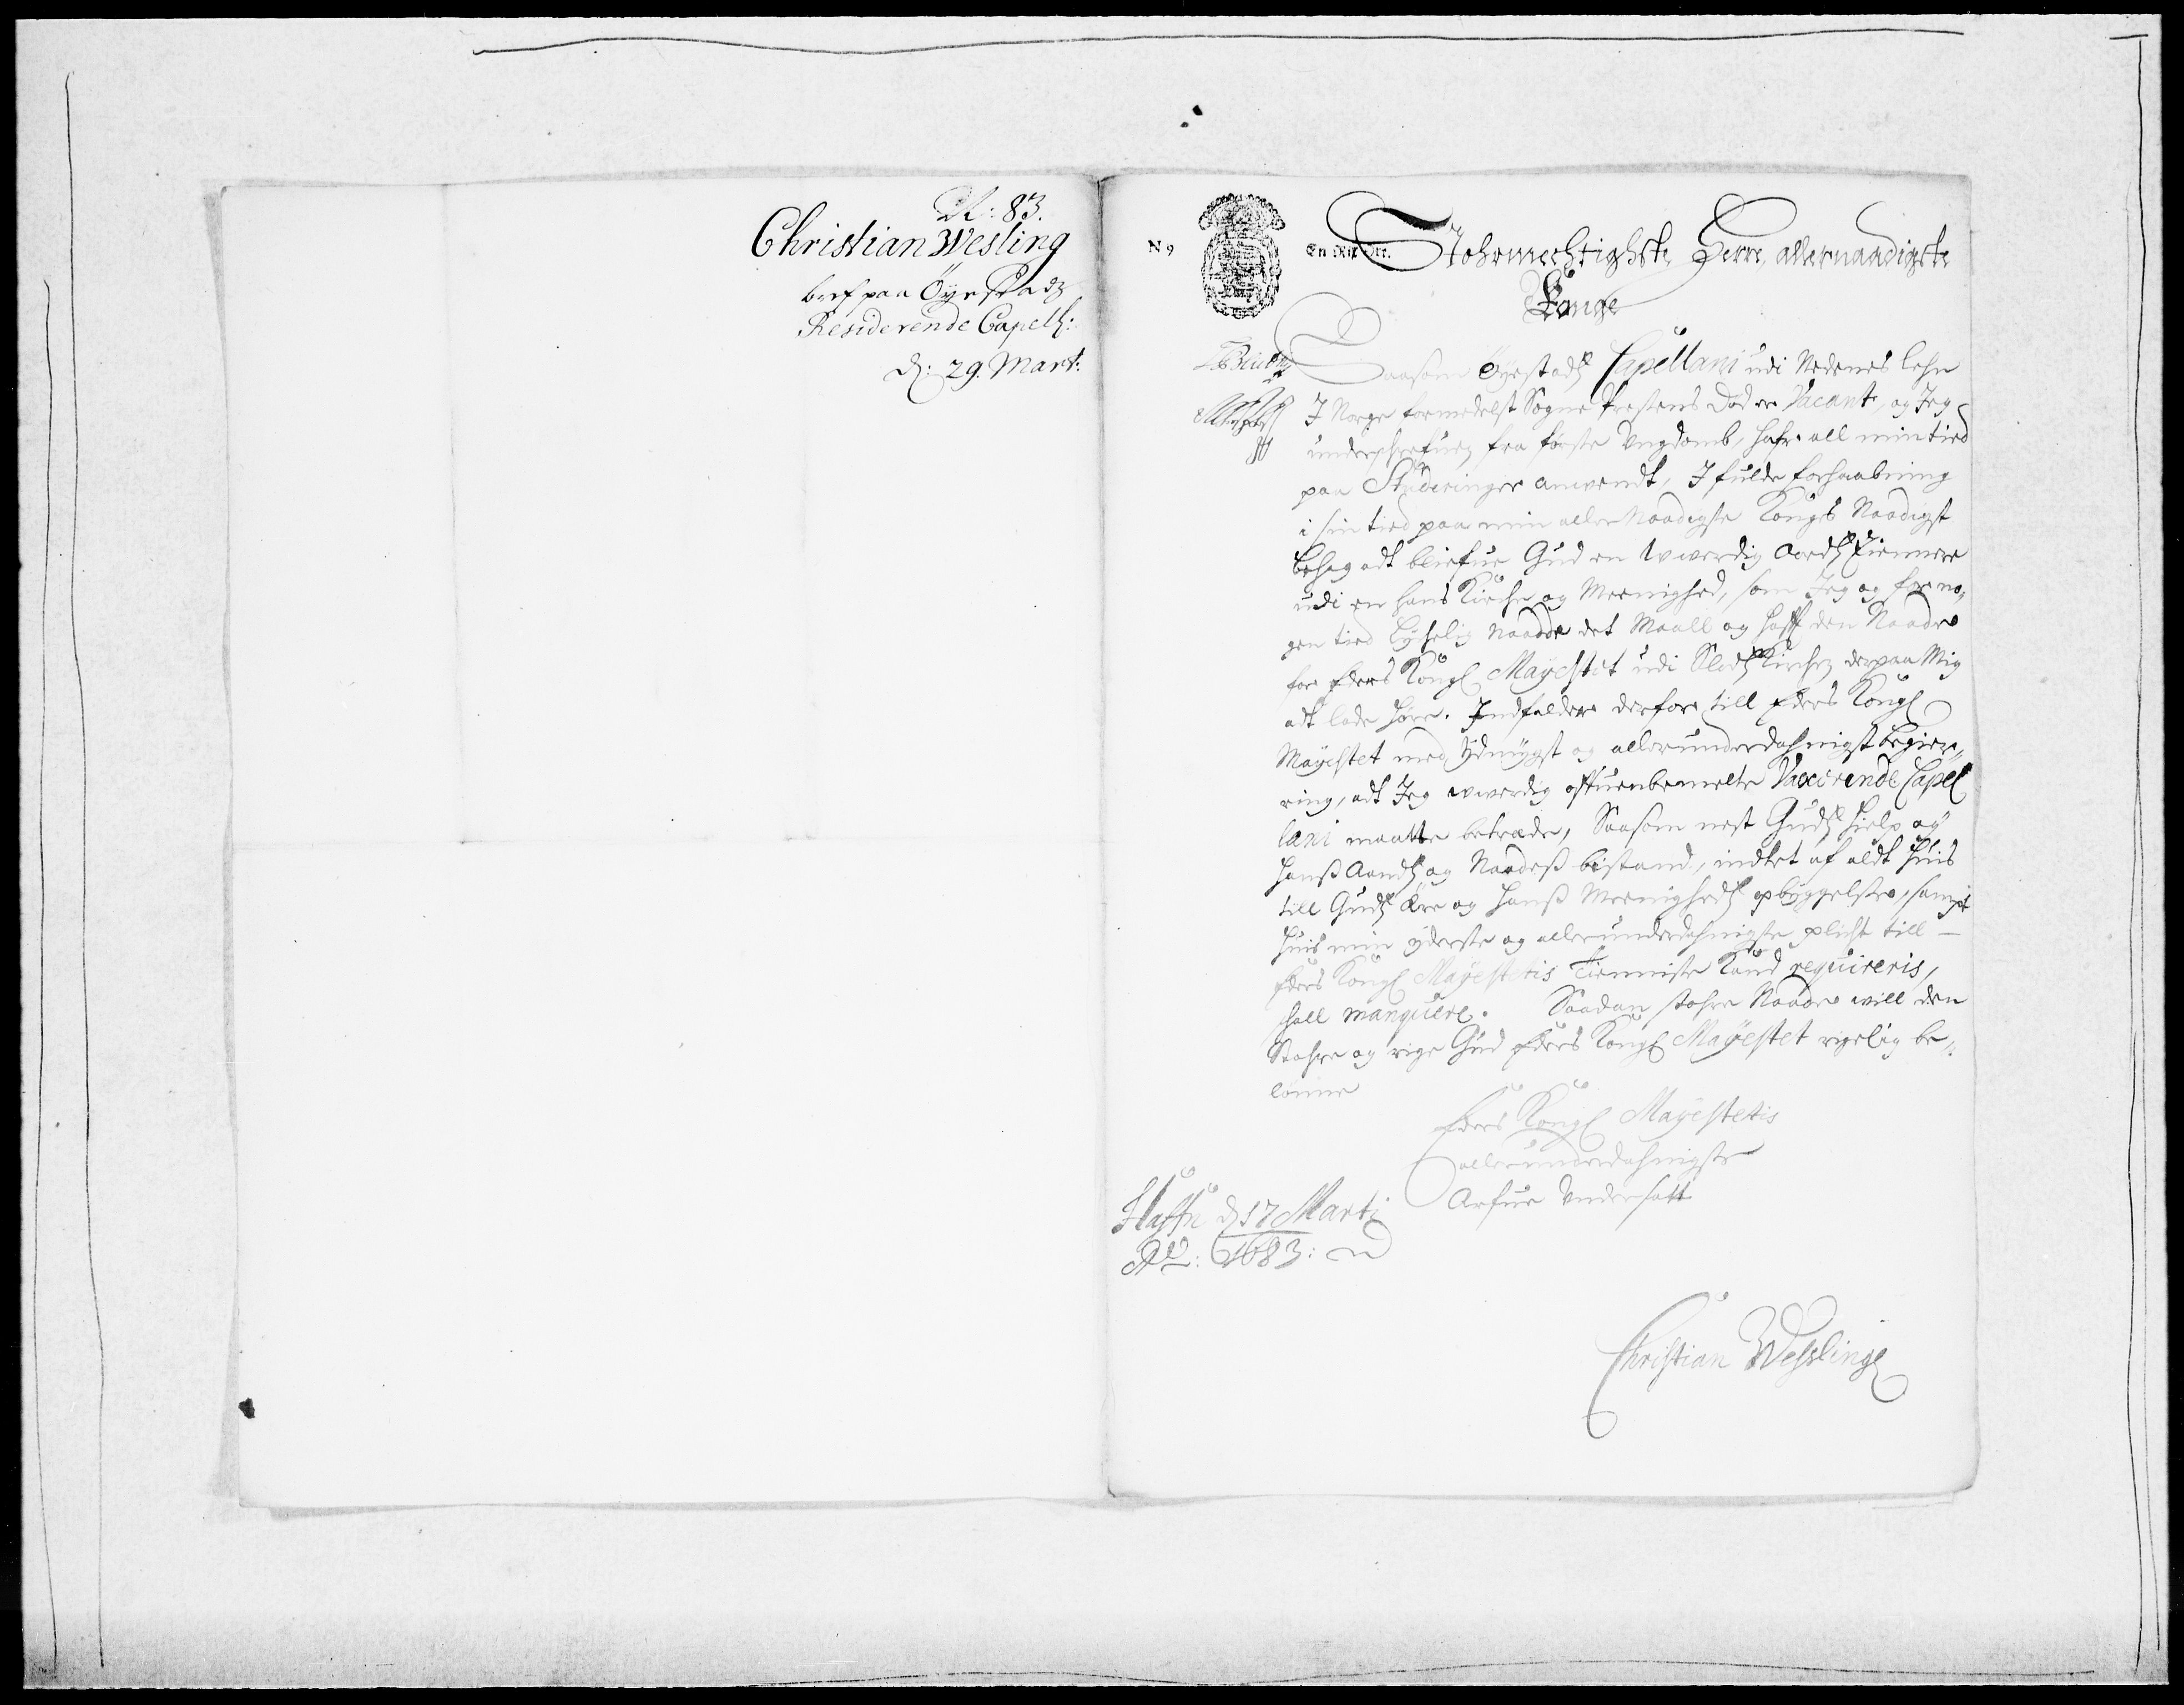 N: 83.
Christian Wesling
bref paa Öyestadz
Residerende Capell:
d: 29. Mart:
N 9
En Rix Ort.
Stohrmechtighste Herre, allernaadigste
Konge
Saasom Öyestadz Capellani udi Nedenes Lehn
I Norge formedelst Sogne Prestens Död er Vacant, og Jeg
underschrefuen fra förste Ungdomb, hafr all min tied
paa Studeringer anvendt, I fulde forhaabning
i sin tied paa min aller Naadigste Konges Naadigst
behag adt bliefue Gud en Uverdig Aands Tiennere
udi en hans Kirche og Meenighed, som Jeg og for no,,
gen tied Lychelig naadde det Maall og haff den Naade
for Eders Kongl Mayestet udi Slodz Kirchen der paa Mig
adt lade höre. Indfalder derfore till Eders Kongl
Mayestet med ydmygst og allerunderdahnigst begier,,
ring, adt Jeg uverdig offuenbemelte Vacerende Capel
lani maatte betræde, Saasom nest Gudz hielp og
hanß Aandz og Naadeß bistand, indtet af aldt huis
till Gudz Ære og hanß Meenighedz opbyggelse, sampt
huis min yderste og allerunderdahnigste plicht till
Eders Kongl Mayestetis Tienniste kand requireris,
shall manquere. Saadan stohre Naade will den
Stohre og rige Gud Eders Kongl Mayestet rigelig be,,
lönne
Eders Kongl Mayestetis
allerunderdahnigste
Arfue Undersatt
Haffn d 17 Marti
Ao: 1683:
Christian Wesslingh